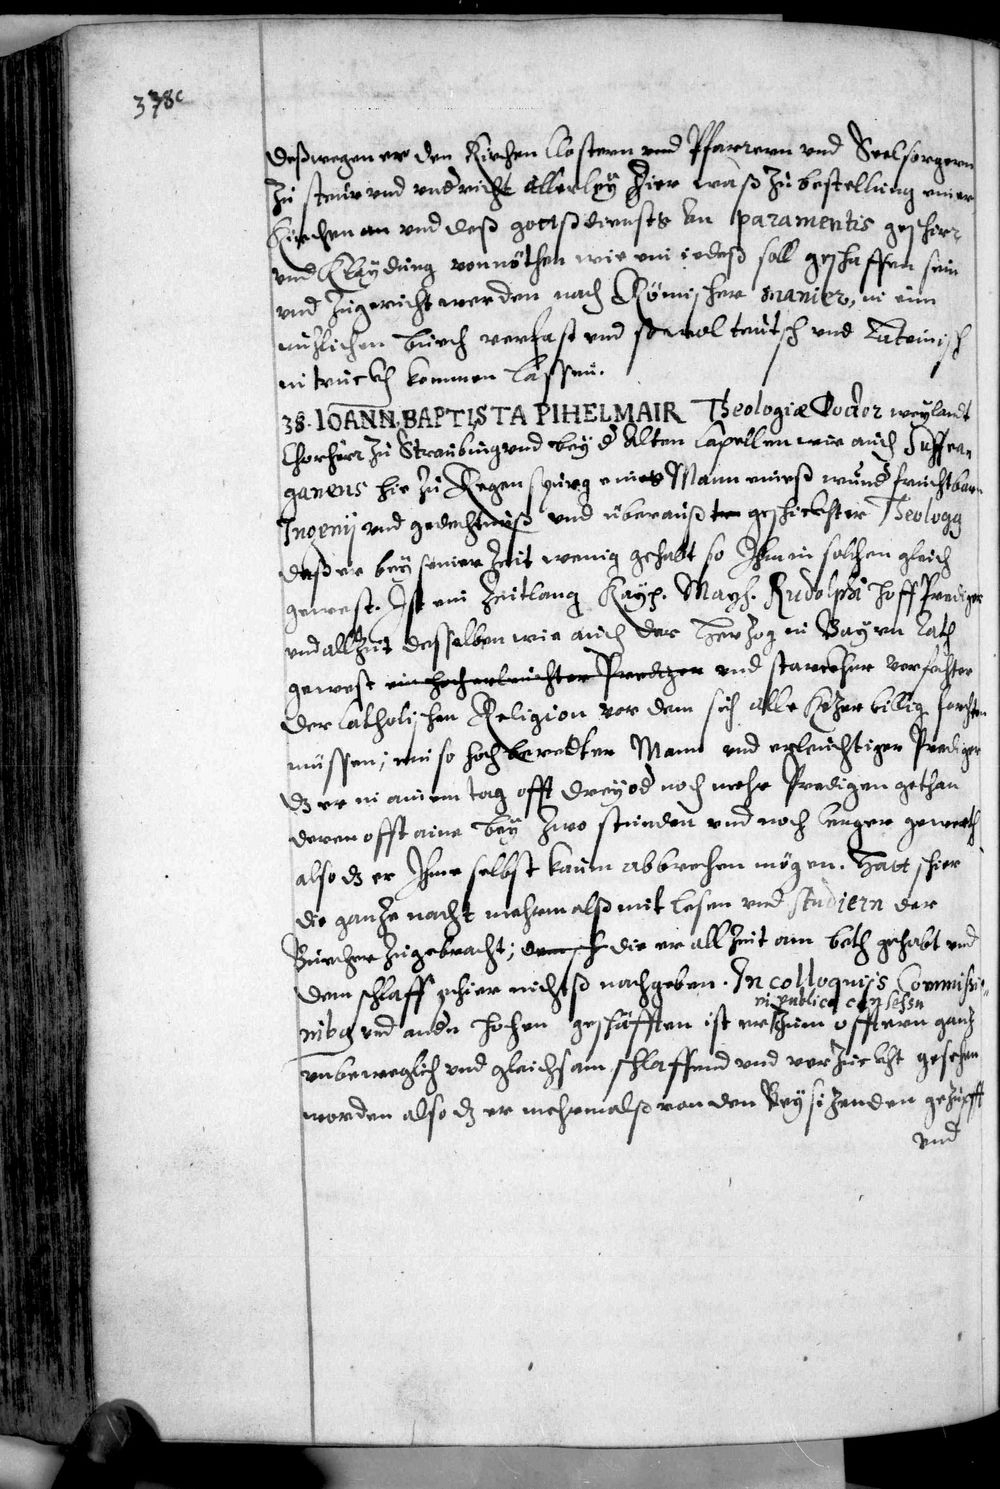 338c
deßwegen er den Kirchen Clostern und Pfarrern und Seelsorgern
zu steur und undricht allerley Zier waß zu bestellung einer
Kirchen an und deß gottßdiensts an paramentis geschirr
und Klaydung vonnöthen wie ein iedeß soll geschaffen sein
und zugericht werden nach Römischer manier, in ein
nuzlichen buech verfast und sowol teutsch und Lateinisch
in truckh kommen lassen.
38. IOANN. BAPTISTA PIHELMAIR Theologiæ Docter weylandt
Chorherr zu Straubing und bey d Alten Capellen wie auch Suffra-
ganens hie zu Regenspurg eines Mann eineß wund fruchtbarn
Ingenij und gedechtnuß und überauß geschickhter Theologg
daß er bey seiner Zeit wenig gehabt so Ihm in solchen gleich
gewest. Ist ein Zeitlang Kays. Mayst. Rudolphi Hoff Prediger
und allzeit desselben wie auch der Herzog in Bayrn Rath
gewest ein hocherleuchter Prediger und starckher verfechter
der Catholischen Religion vor dem sich alle Kezer billig forchten
müssen; ein so hochberedter Mann und erleuchtiger Prediger
dz er in ainem tag offt drey od noch mehr Predigen gethan
deren offt aine bey zwo stunden und noch lenger gewerth
also dz er Ihme selbst kaum abbrechen mögen. Hatt schier
die ganze nacht mehrmalß mit lesen und studiern der
Buecher zugebracht; die er allzeit am beth gehabt und
dem schlaff schier nichtß nachgeben. In colloquijs Commissio-
in publico consessu
nibg und andn hohen geschäfften ist er zum offtern ganz
unbeweglich und gleichsam schlaffend und verzuckht gesehen
worden also dz er mehrmalß von den Beysizenden gezupfft
und